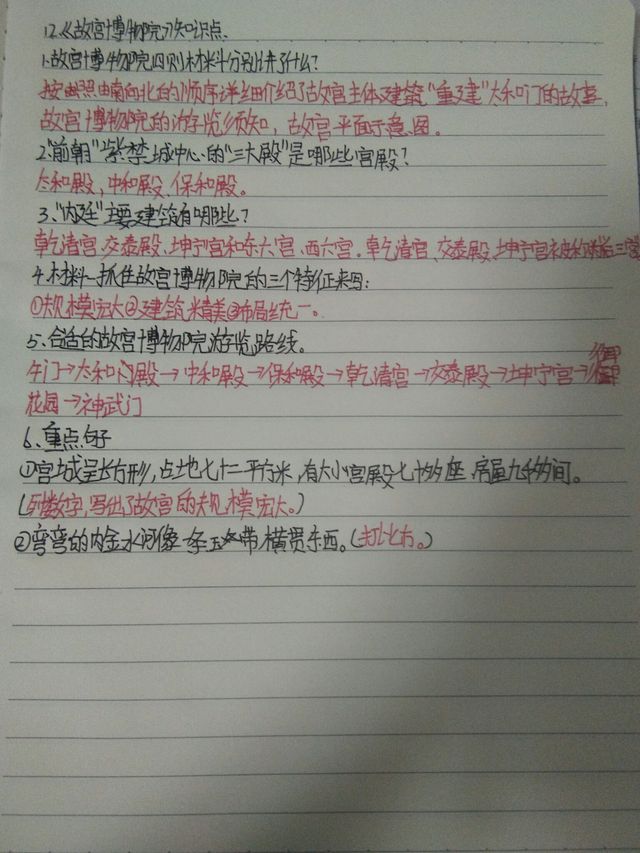 12.《故宫博物院》知识点.
1.故宫博物院四则材料分别讲了什么?
按照由南向北的顺序详细介绍了故宫主体建筑"重建"太和门的故事,
故宫博物院的游览须知,故宫平面示意图。
2."前朝"紫禁城中心的"三大殿"是哪些宫殿?
太和殿,中和殿、保和殿。
3."内廷"主要建筑有哪些?
乾清宫、交泰殿、坤宁宫和东六宫、西六宫.乾清宫、交泰殿、坤宁宫被称为后三宫
4.材料一抓住故宫博物院的三个特征来写:
①规模宏大②建筑精美③布局统一。
5.合适的故宫博物院游览路线。
午门→太和门殿→中和殿→保和殿→乾清宫→交泰殿→坤宁宫→御
花园→神武门
6、重点句子
①宫城呈长方形,占地七十二平方米,有大小宫殿七十多座、房屋九千多间。
(列数字,写出了故宫的规模宏大。)
②弯弯的内金水河像一条玉带横贯东西。(打比方。)